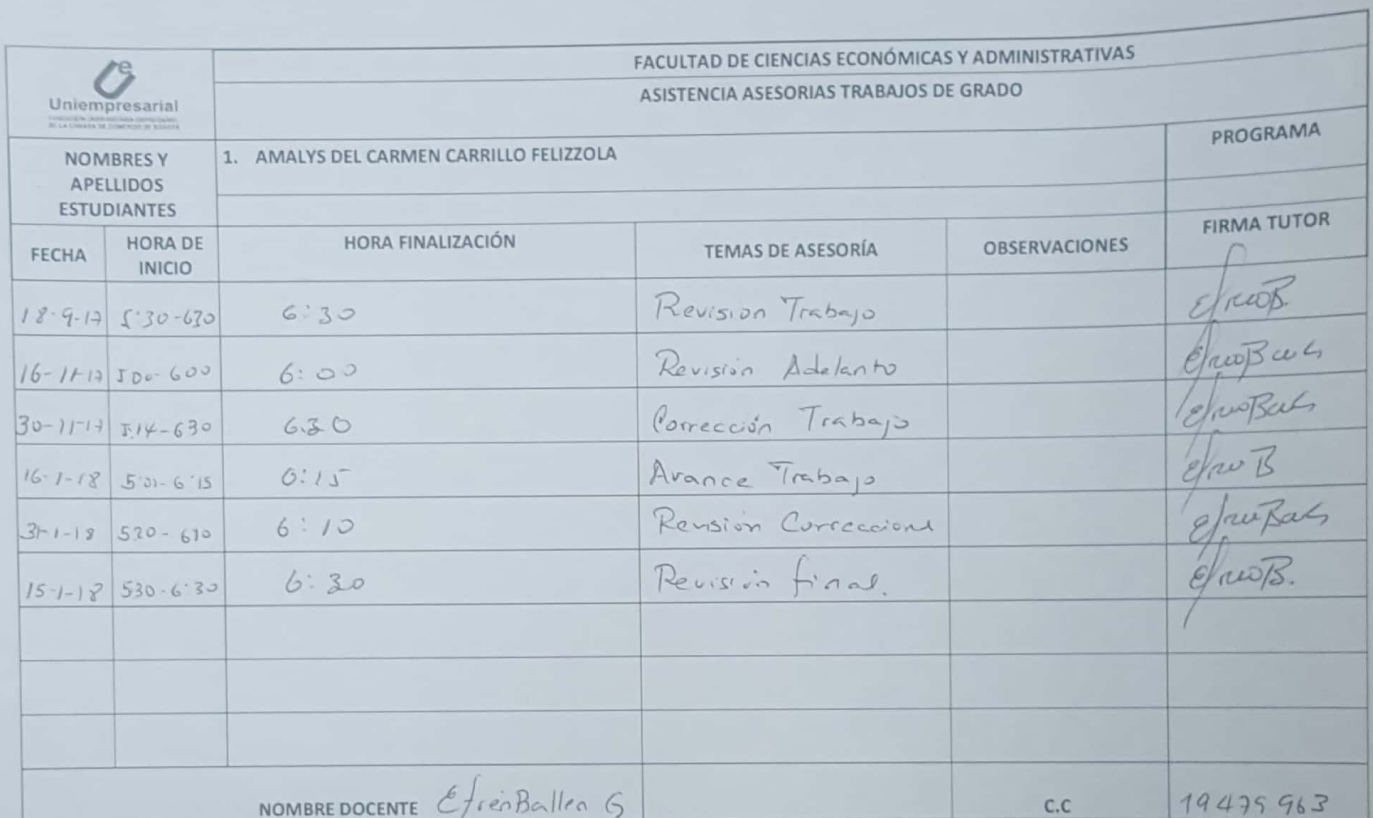 Uniempresarial
FACULTAD DE CIENCIAS ECONÓMICAS Y ADMINISTRATIVAS
ASISTENCIA ASESORIAS TRABAJOS DE GRADO
NOMBRES Y APELLIDOS ESTUDIANTES
1. AMALYS DEL CARMEN CARRILLO FELIZZOLA
PROGRAMA
FECHA HORA DE INICIO HORA FINALIZACIÓN TEMAS DE ASESORÍA OBSERVACIONES FIRMA TUTOR
18-9-17 5:30-630 6:30 Revisión Trabajo
16-11-17 500-600 6:00 Revisión Adelanto
30-11-17 5.14-630 6.30 Corrección Trabajo
16-1-18 5:01-6:15 6:15 Avance Trabajo
31-1-18 530-610 6:10 Revisión Correccione
15-1-18 530-6:30 6:30 Revisión final.
NOMBRE DOCENTE Efrén Ballen G C.C 19475963